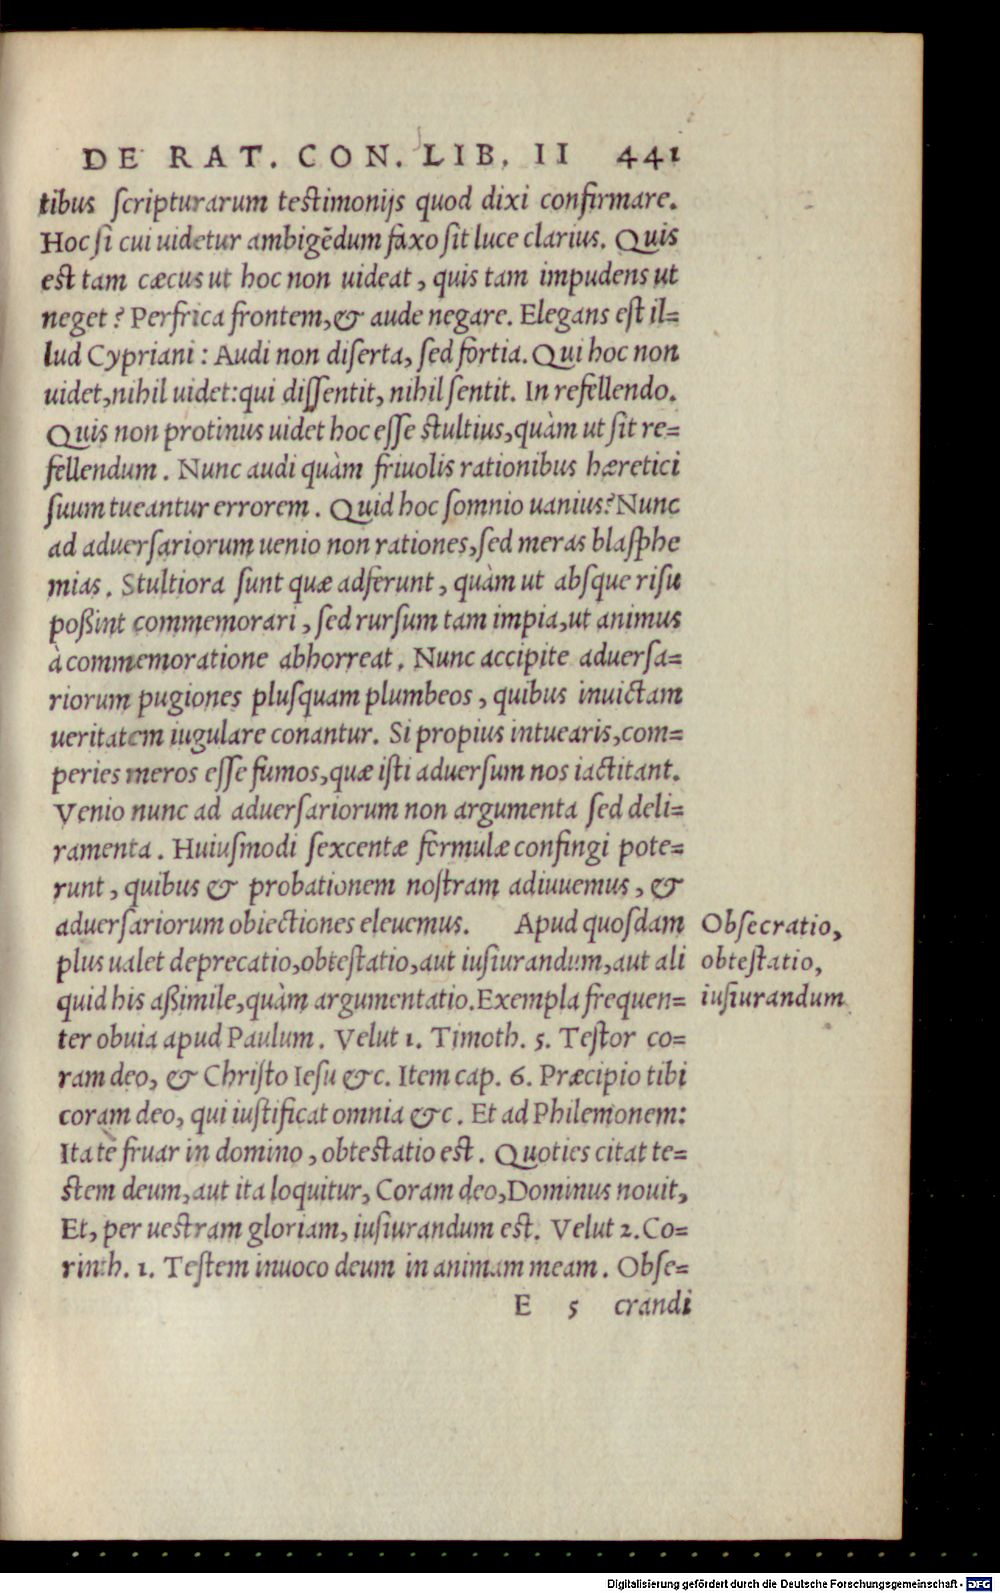 DE RAT. CON. LIB. II 441
tibus scripturarum testimonijs quod dixi confirmare.
Hoc si cui uidetur ambigẽdum faxo sit luce clarius. Quis
est tam cæcus ut hoc non uideat, quis tam impudens ut
neget? Perfrica frontem, & aude negare. Elegans est il=
lud Cypriani: Audi non diserta, sed fortia. Qui hoc non
uidet, nihil uidet: qui dissentit, nihil sentit. In refellendo.
Quis non protinus uidet hoc esse stultius, quàm ut sit re=
fellendum. Nunc audi quàm friuolis rationibus hæretici
suum tueantur errorem. Quid hoc somnio uanius? Nunc
ad aduersariorum uenio non rationes, sed meras blasphe
mias. Stultiora sunt quæ adferunt, quàm ut absque risu
poßint commemorari, sed rursum tam impia, ut animus
à commemoratione abhorreat. Nunc accipite aduersa=
riorum pugiones plusquam plumbeos, quibus inuictam
ueritatem iugulare conantur. Si propius intuearis, com=
peries meros esse fumos, quæ isti aduersum nos iactitant.
Venio nunc ad aduersariorum non argumenta sed deli=
ramenta. Huiusmodi sexcentæ formulæ confingi pote=
runt, quibus & probationem nostram adiuuemus, &
aduersariorum obiectiones eleuemus. Apud quosdam
plus ualet deprecatio, obtestatio, aut iusiurandum, aut ali
quid his aßimile, quàm argumentatio. Exempla frequen=
ter obuia apud Paulum. Velut 1. Timoth. 5. Testor co=
ram deo, & Christo Iesu &c. Item cap. 6. Præcipio tibi
coram deo, qui iustificat omnia &c. Et ad Philemonem:
Ita te fruar in domino, obtestatio est. Quoties citat te=
stem deum, aut ita loquitur, Coram deo, Dominus nouit,
Et, per uestram gloriam, iusiurandum est. Velut 2. Co=
rinth. 1. Testem inuoco deum in animam meam. Obse=
E 5 crandi
Obsecratio,
obtestatio,
iusiurandum
Digitalisierung gefördert durch die Deutsche Forschungsgemeinschaft - DFG